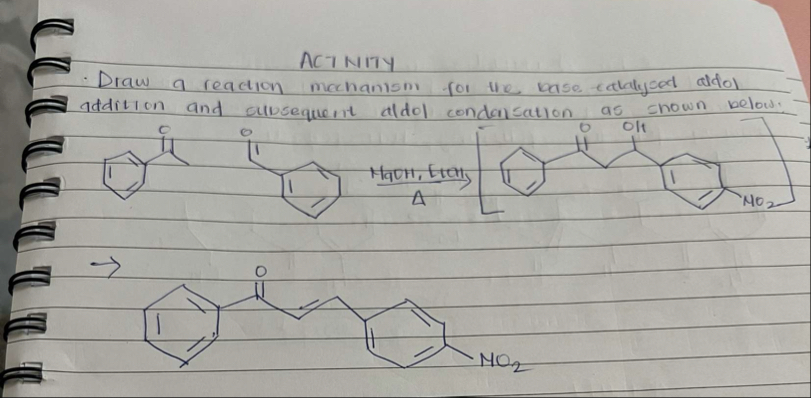 ACTIVITY
· Draw a reaction mechanism for the base-catalysed aldol
addition and subsequent aldol condensation as shown below.
O O O OH
NaOH, EtOH,
Δ
NO2
→ O
NO2